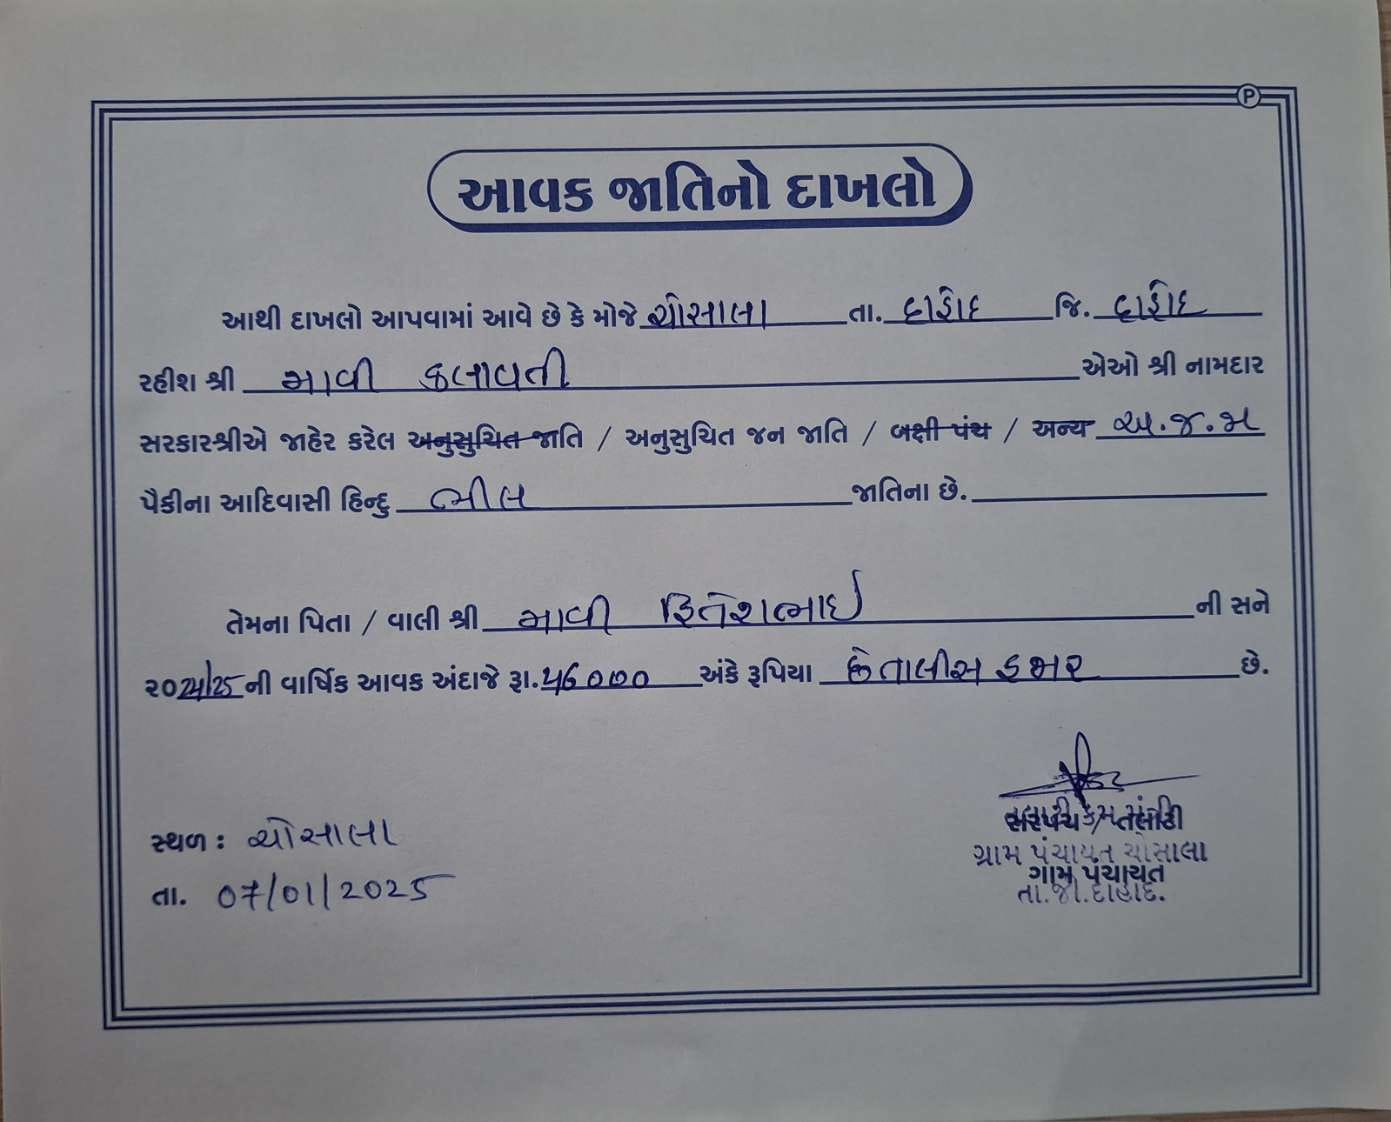 આવક જાતિનો દાખલો
આથી દાખલો આપવામાં આવે છે કે મોજે ચોસાલા તા. દાહોદ જિ. દાહોદ
રહીશ શ્રી ભાવી કલાવતી એઓ શ્રી નામદાર
સરકારશ્રીએ જાહેર કરેલ અનુસુચિત જાતિ / અનુસુચિત જન જાતિ / બક્ષી પંથ / અન્ય અ.જ.જા
પૈકીના આદિવાસી હિન્દુ ભીલ જાતિના છે.
તેમના પિતા / વાલી શ્રી ભાવી હિતેશભાઇ ની સને
૨૦24/25 ની વાર્ષિક આવક અંદાજે રૂા. 46000 અંકે રૂપિયા છેતાલીસ હજાર છે.
સ્થળ : ચોસાલા
તા. 07/01/2025
તલાટી કમ મંત્રી
સરપંચ / તલાટી
ગ્રામ પંચાયત ચોસાલા
ગામ પંચાયત
તા.જી.દાહોદ.
P